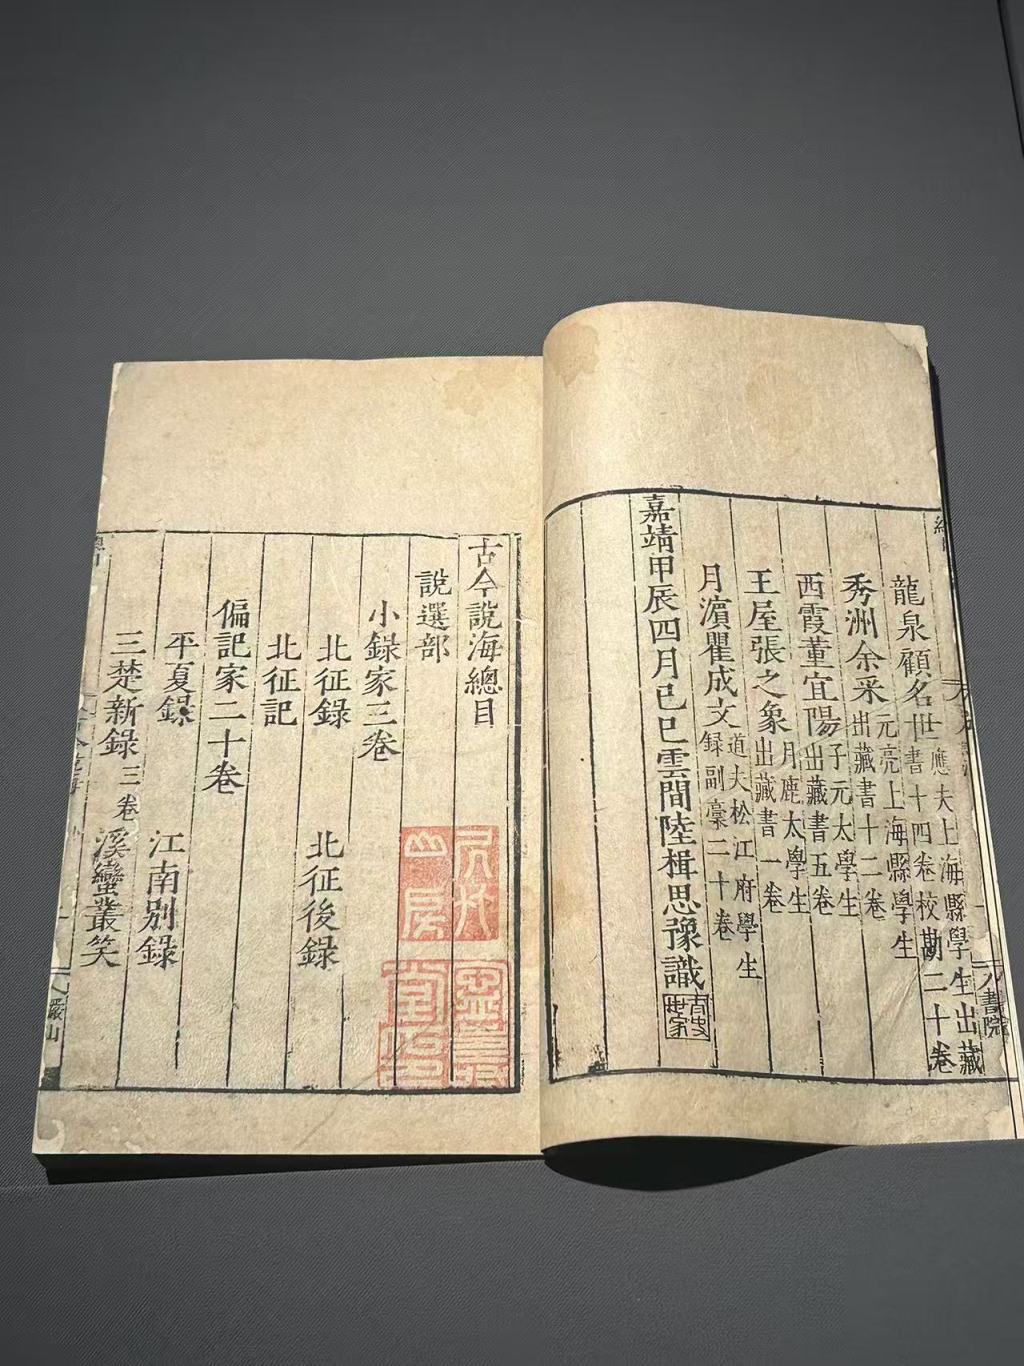 龍泉顧名世應夫上海縣學生出藏書十四卷校勘二十卷
秀洲余采元亮上海縣學生出藏書十二卷
西霞董宜陽子元太學生出藏書五卷
王屋張之象月鹿太學生出藏書一卷
月濵瞿成文道夫松江府學生録副稾二十卷
嘉靖甲辰四月己巳雲間陸楫思豫識
書院
古今說海總目
說選部
小録家三卷
北征録
北征後録
北征記
偏記家二十卷
平夏録
江南別録
三楚新録三卷
溪蠻叢笑
儼山